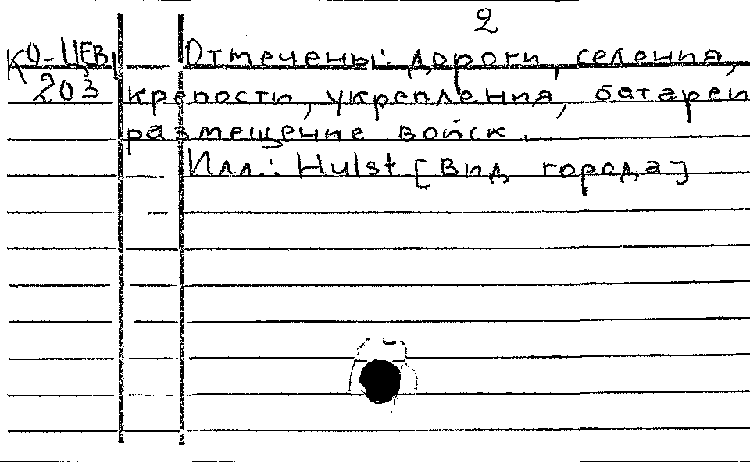 2
КО-ЦЕВ/ Отмечены: дороги, селения,
203 крепости, укрепления, батареи
размещение войск.
Илл.: Hulst [Вид города]